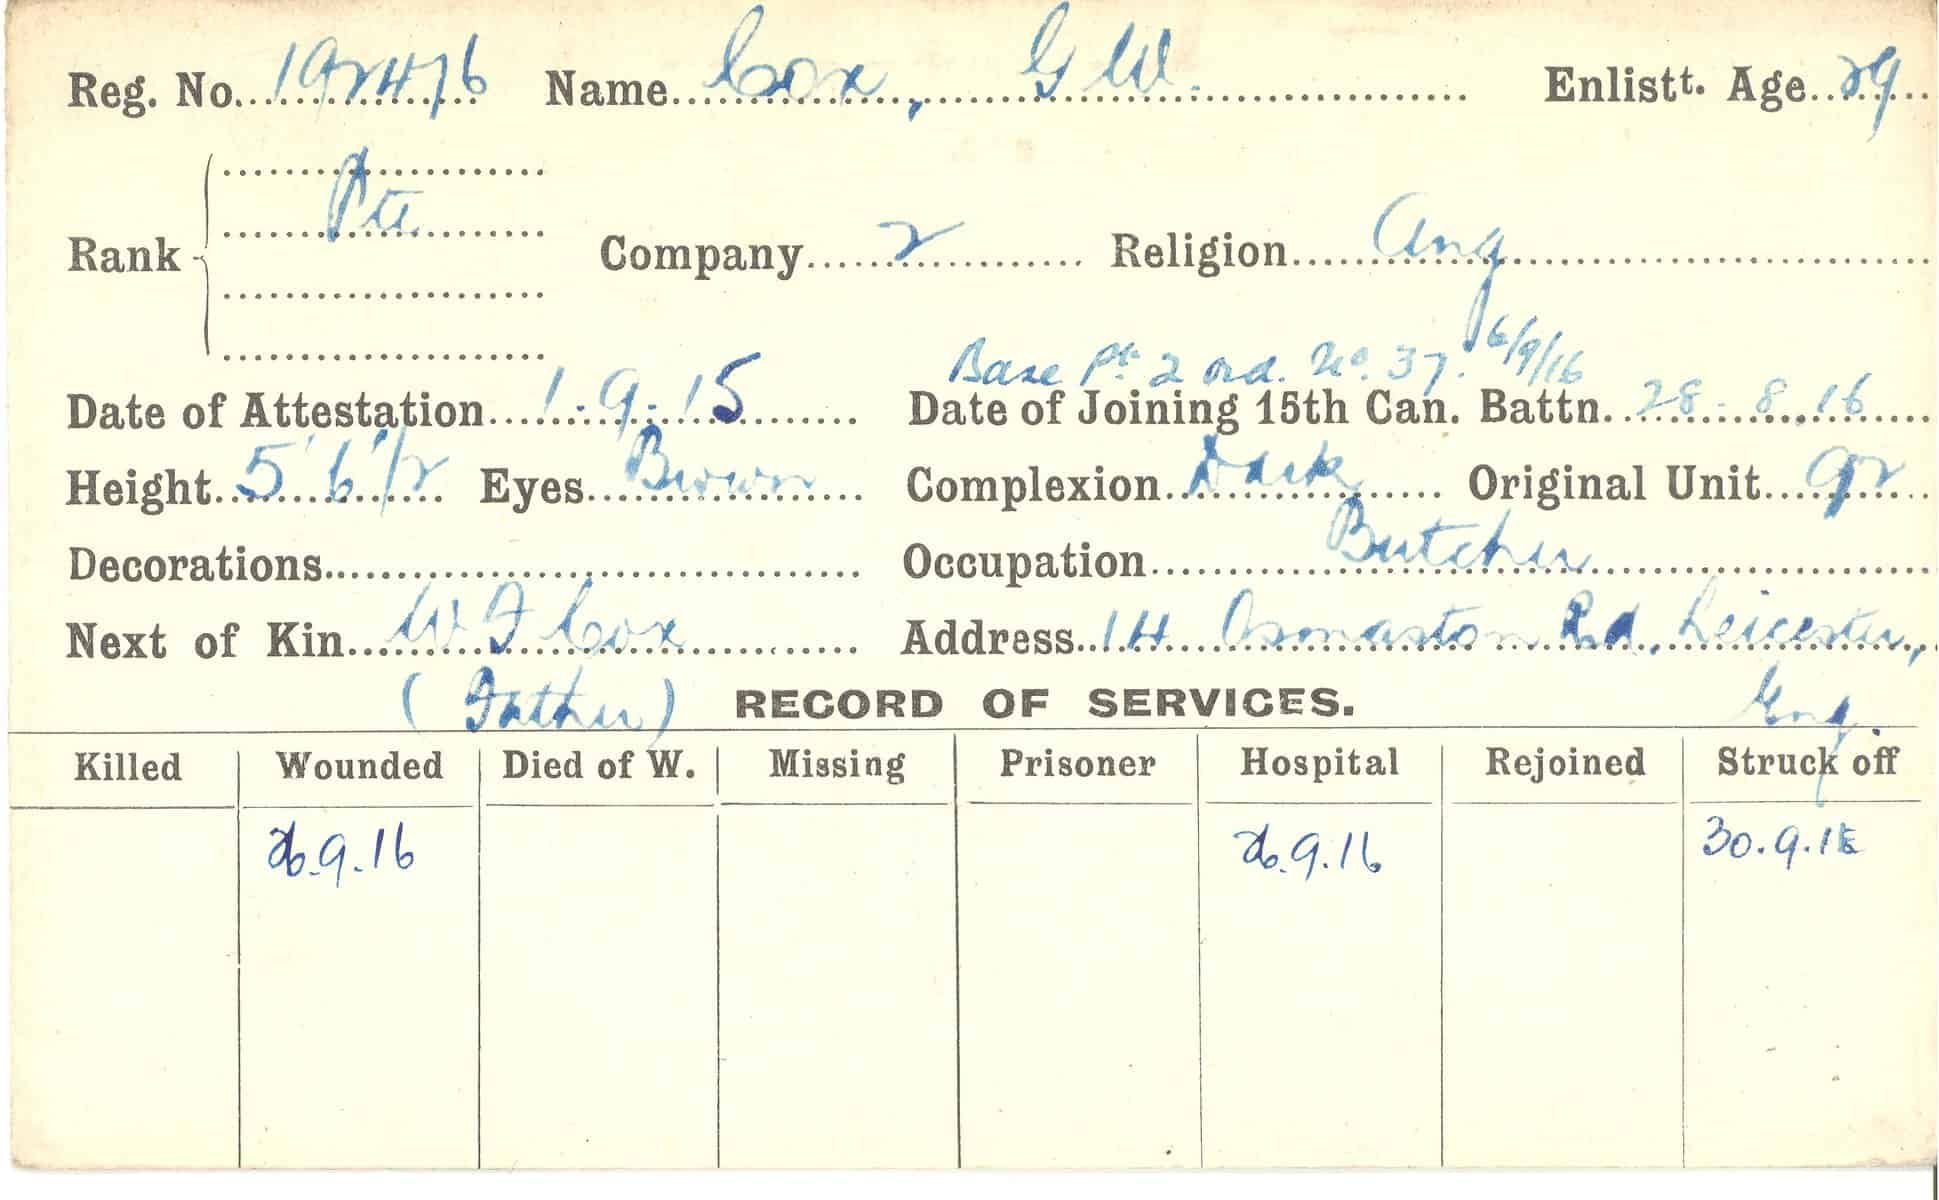 Reg. No. 192476 Name Cox, G W. Enlistt. Age 29
Rank Pte Company 2 Religion Ang
Base Pt. 2 Ord. No. 37. 6/9/16
Date of Attestation 1.9.15 Date of Joining 15th Can. Battn. 28.8.16
Height 5' 6" 1/2 Eyes Brown Complexion Dark Original Unit 92
Decorations Occupation Butcher
Next of Kin W F Cox Address 14 Osmaston Rd, Leicester,
(Father) RECORD OF SERVICES. Eng.
Killed Wounded Died of W. Missing Prisoner Hospital Rejoined Struck off
26.9.16 26.9.16 30.9.16